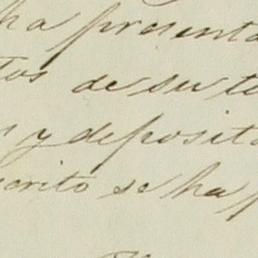 ha presenta
tos de su te
y deposita
scrito se ha p